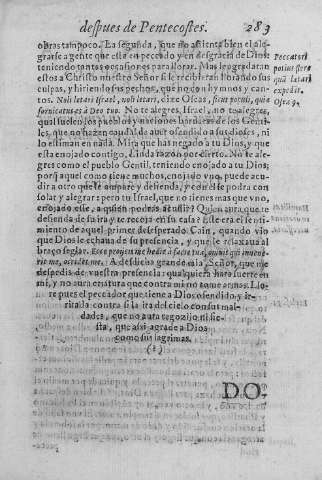 despues de Pentecostes. 283
obras tampoco. La segunda, que no asienta bien el ale-
grarse a gente que està en pecado y en desgracia de Dios:
teniendo tantas ocasiones para llorar. Mas le agradaran
estos a Christo nuestro Señor si le recibieran llorando sus
culpas, y hiriendo sus pechos, que no con hymnos y can-
tos. Noli letari Israel, noli letari, dize Oseas, sicut populi, quia
fornicatus es à Deo tuo. No te alegres, Israel, no te alegres,
qual suelen los pueblos y naciones barbaras de los Genti-
les, que no hazen caudal de auer ofendido a sus dioses, ni
lo estiman en nada. Mira que has negado a tu Dios, y que
esta enojado contigo. Linda razon por cierto. No te ale-
gres como el pueblo Gentil, teniendo enojado a tu Dios;
porque aquel como tiene muchos, enojado vno, puede acu-
dir a otro que le ampare y defienda, y con esse podra con
solar y alegrar: pero tu Israel, que no tienes mas que vno,
enojado esse, a quien podras acudir? Quien aura que te
defienda de su ira y te recoja en su casa? Este era el senti-
miento de aquel primer desesperado Cain, quando viò
que Dios le echaua de su presencia, y que le relaxaua al
braço seglar. Ecce proijcis me hodie à facie tua, omnis qui inuene-
rit me, occidet me. A desdicha grande mia, Señor, que me
despedis de vuestra presencia: qualquiera harà suerte en
mi, y no aura criatura que contra mi no tome armas. Llo-
re pues el pecador que tiene a Dios ofendido y ir-
ritada contra si la ira del cielo con sus mal-
dades, que no aura regozijo ni fie-
sta, que assi agrade a Dios
como sus lagrimas.
(.?.)
Peccatori
potius flere
quã letari
expedit.
Osea 9.
DO-